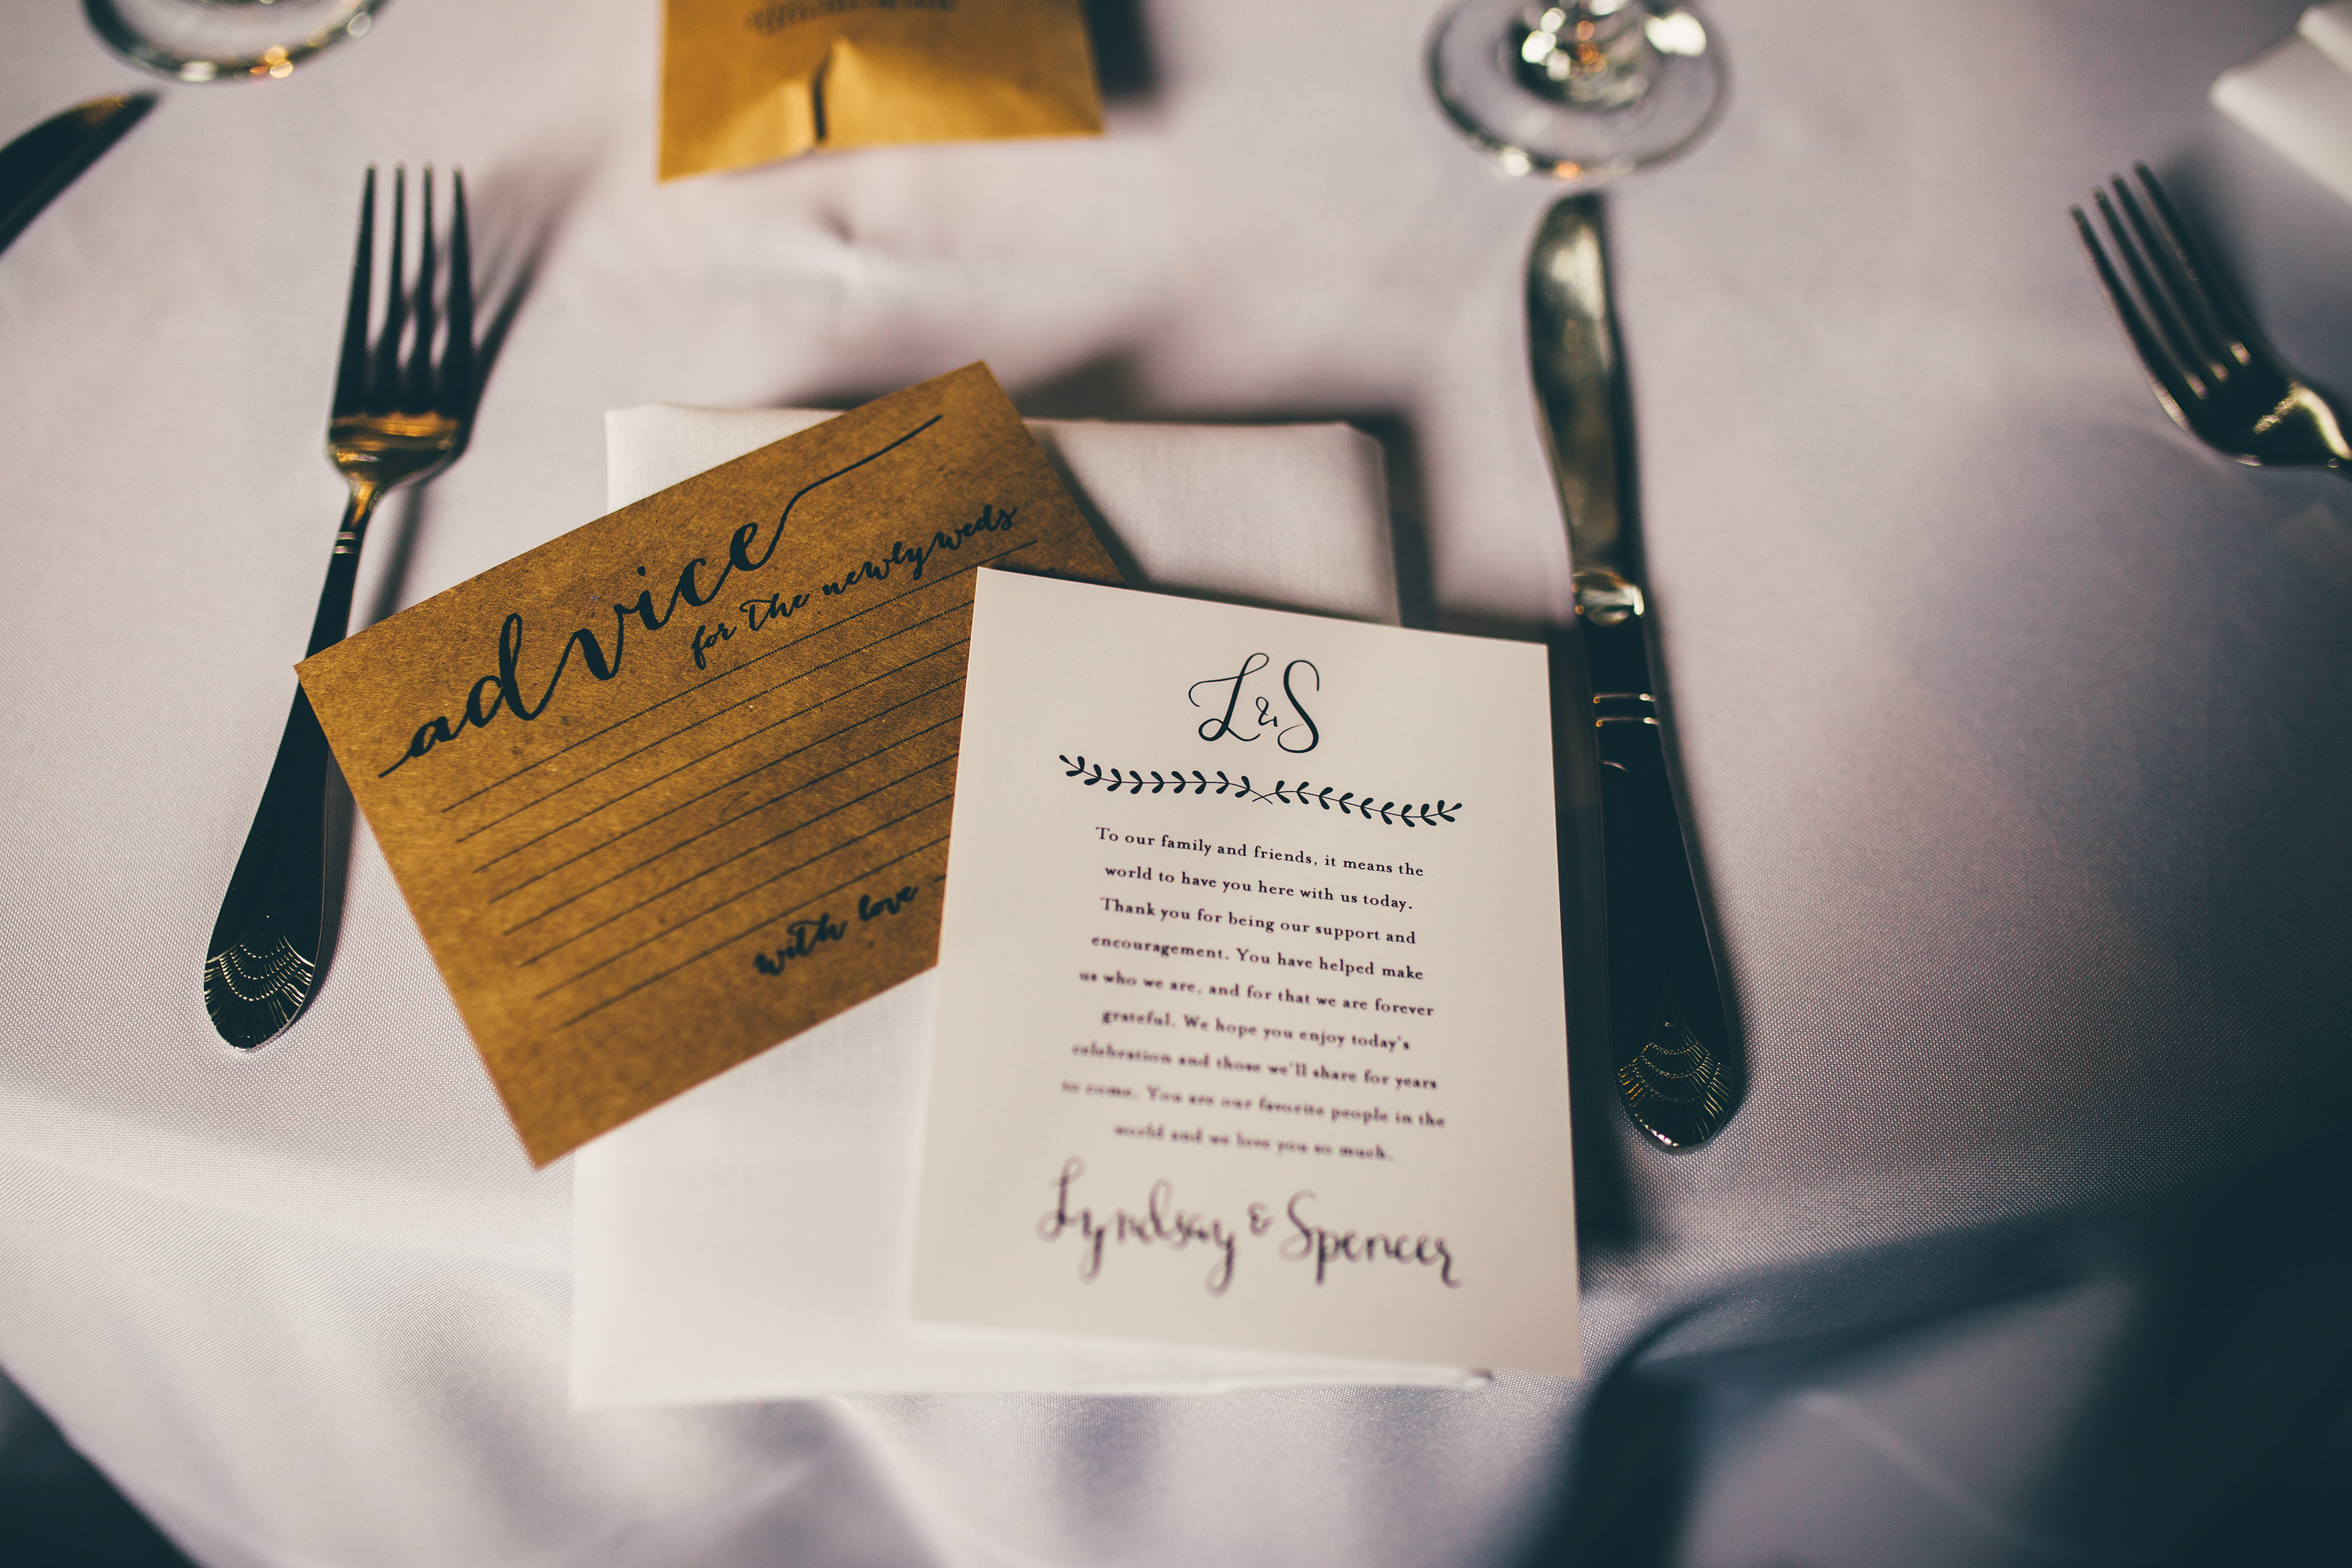 advice
for the newlyweds
with love -
L & S
To our family and friends, it means the
world to have you here with us today.
Thank you for being our support and
encouragement. You have helped make
us who we are, and for that we are forever
grateful. We hope you enjoy today's
celebration and those we'll share for years
to come. You are our favorite people in the
world and we love you so much.
Lyndsay & Spencer